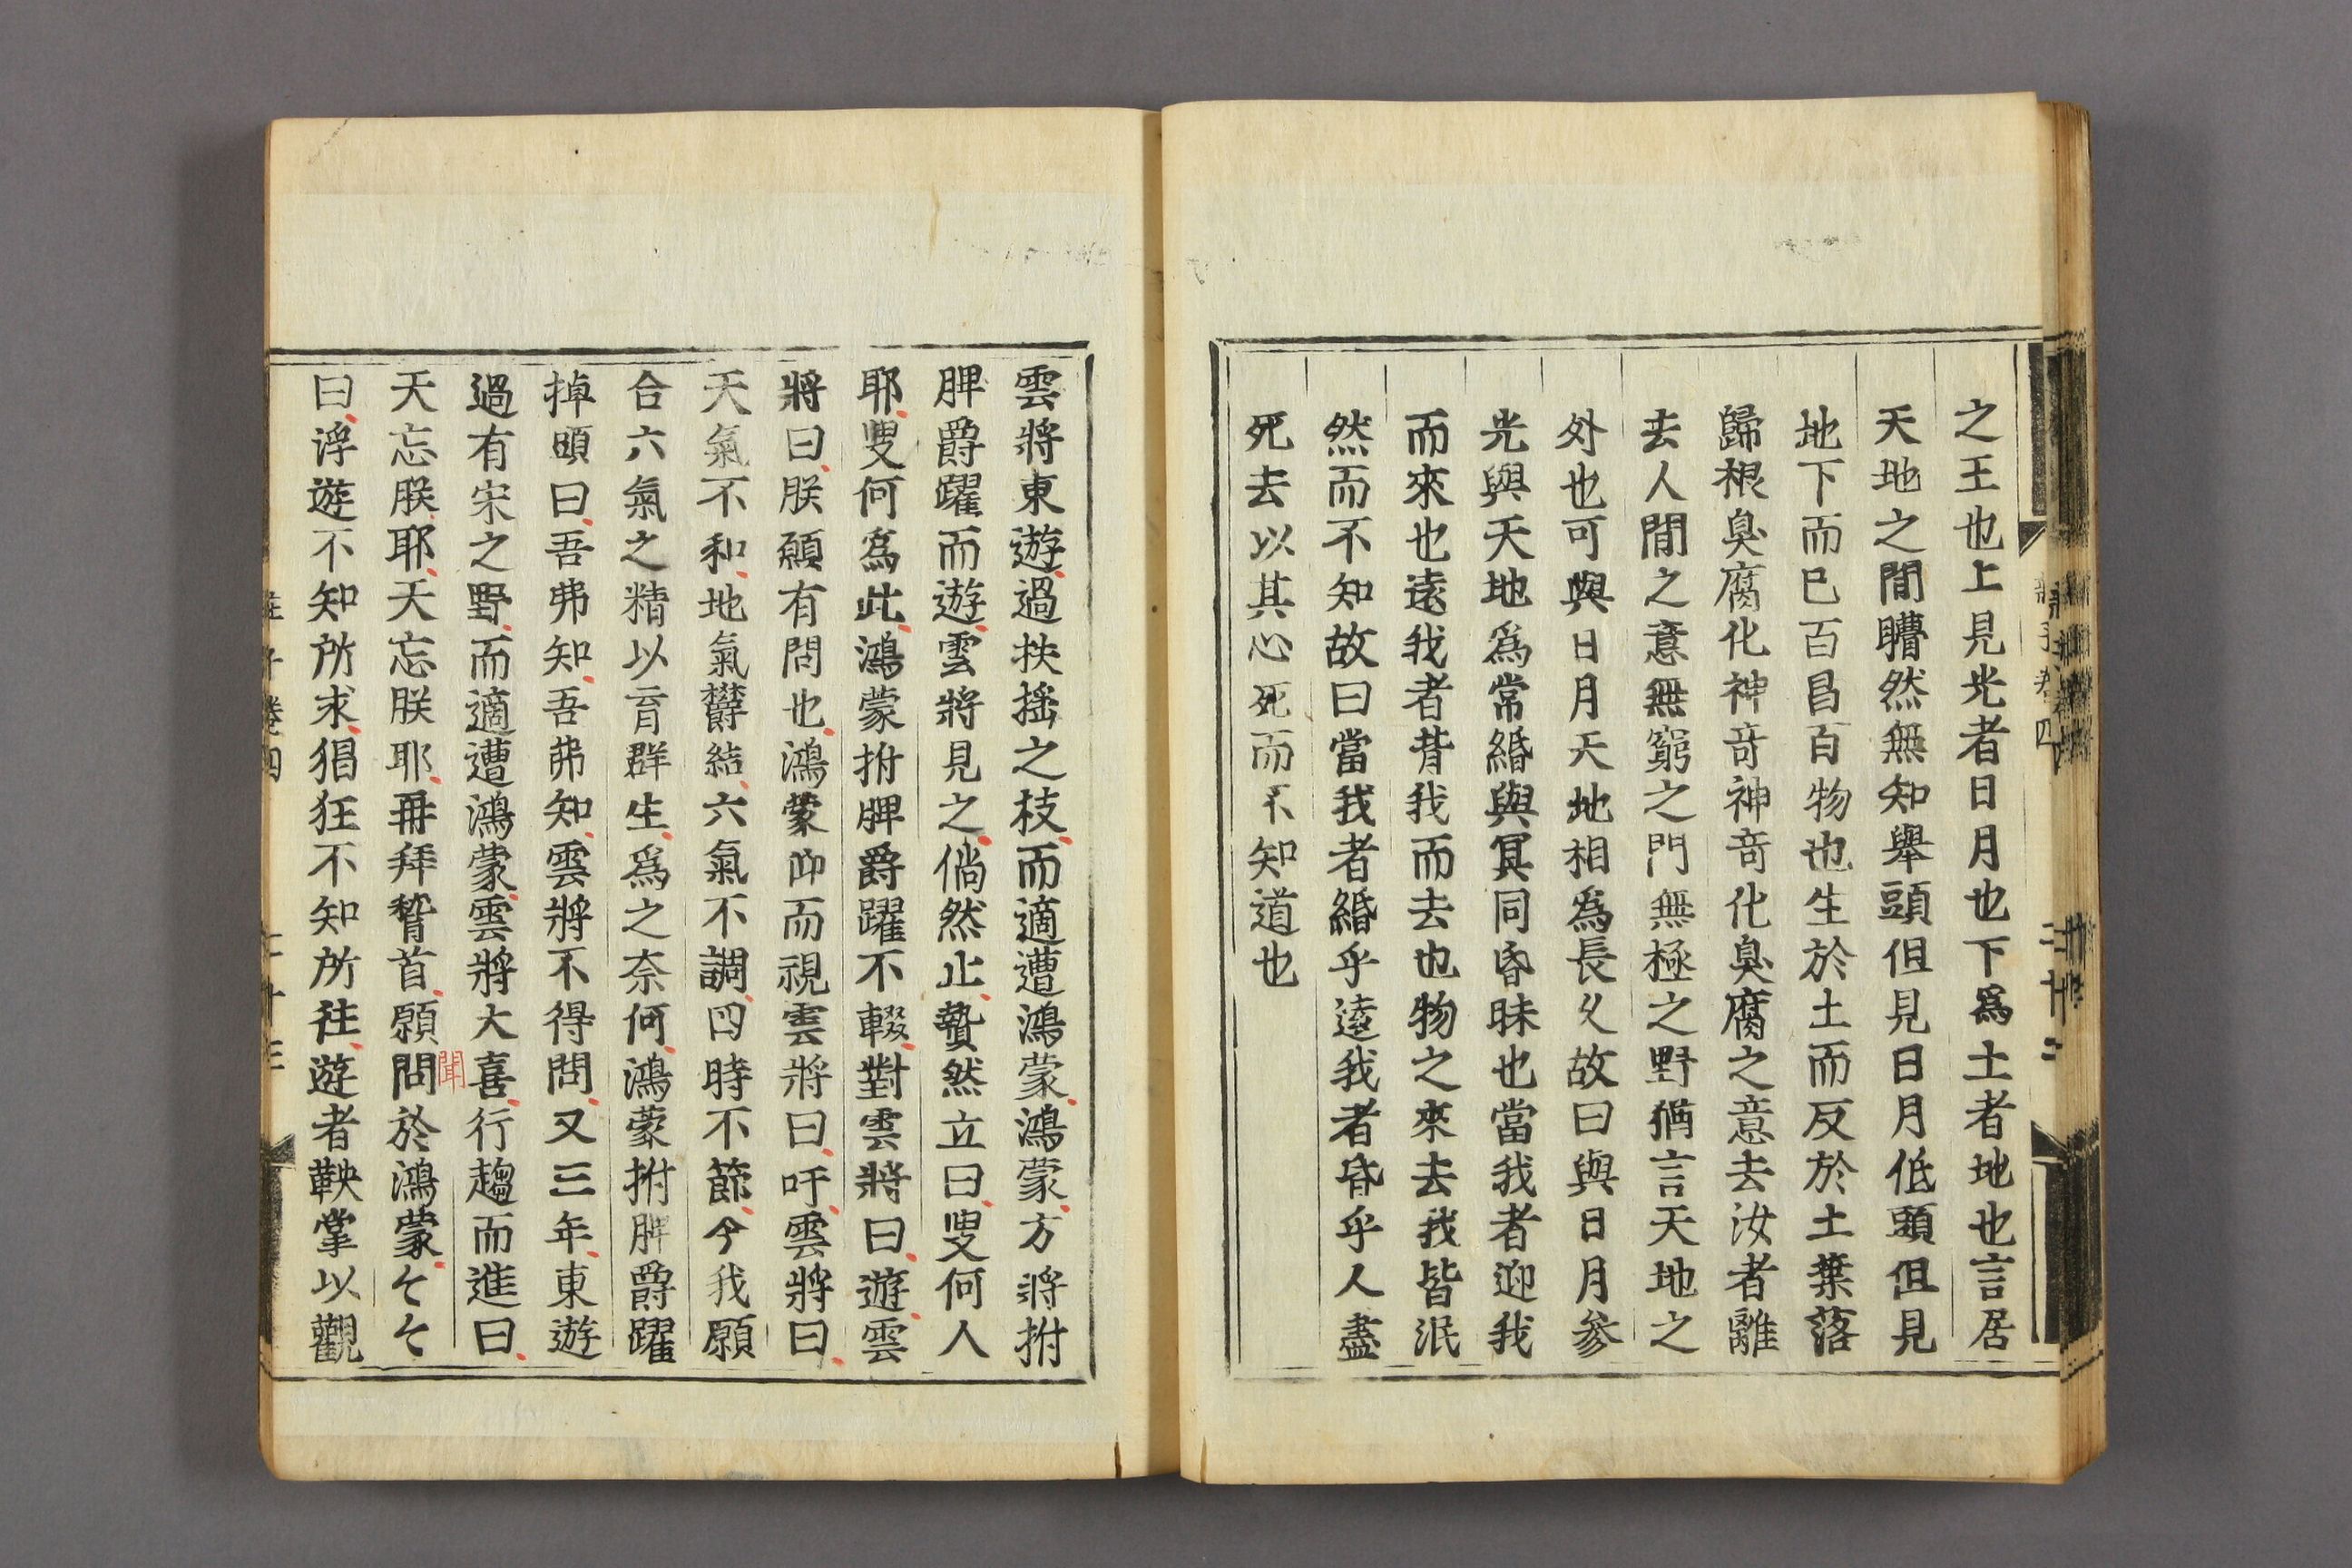 之王也上見光者日月也下爲土者地也言居
天地之間瞢然無知舉頭但見日月低頭但見
地下而已百昌百物也生於土而反於土葉落
歸根臭腐化神奇神奇化臭腐之意去汝者離
去人間之意無窮之門無極之野猶言天地之
外也可與日月天地相爲長久故曰與日月參
光與天地爲常緡與冥同昏昧也當我者迎我
而來也遠我者背我而去也物之來去我皆泯
然而不知故曰當我者緡乎遠我者昏乎人盡
死去以其心死而不知道也
雲將東遊過扶搖之枝而適遭鴻蒙鴻蒙方將拊
脾爵躍而遊雲將見之倘然止贄然立曰叟何人
耶叟何爲此鴻蒙拊脾爵躍不輟對雲將曰遊雲
將曰朕願有問也鴻蒙仰而視雲將曰吁雲將曰
天氣不和地氣欝結六氣不調四時不節今我願
合六氣之精以育群生爲之奈何鴻蒙拊脾爵躍
掉頭曰吾弗知吾弗知雲將不得問又三年東遊
過有宋之野而適遭鴻蒙雲將大喜行趨而進曰
天忘朕耶天忘朕耶再拜稽首願問於鴻蒙々々
聞
曰浮遊不知所求猖狂不知所往遊者鞅掌以觀
莊子卷四